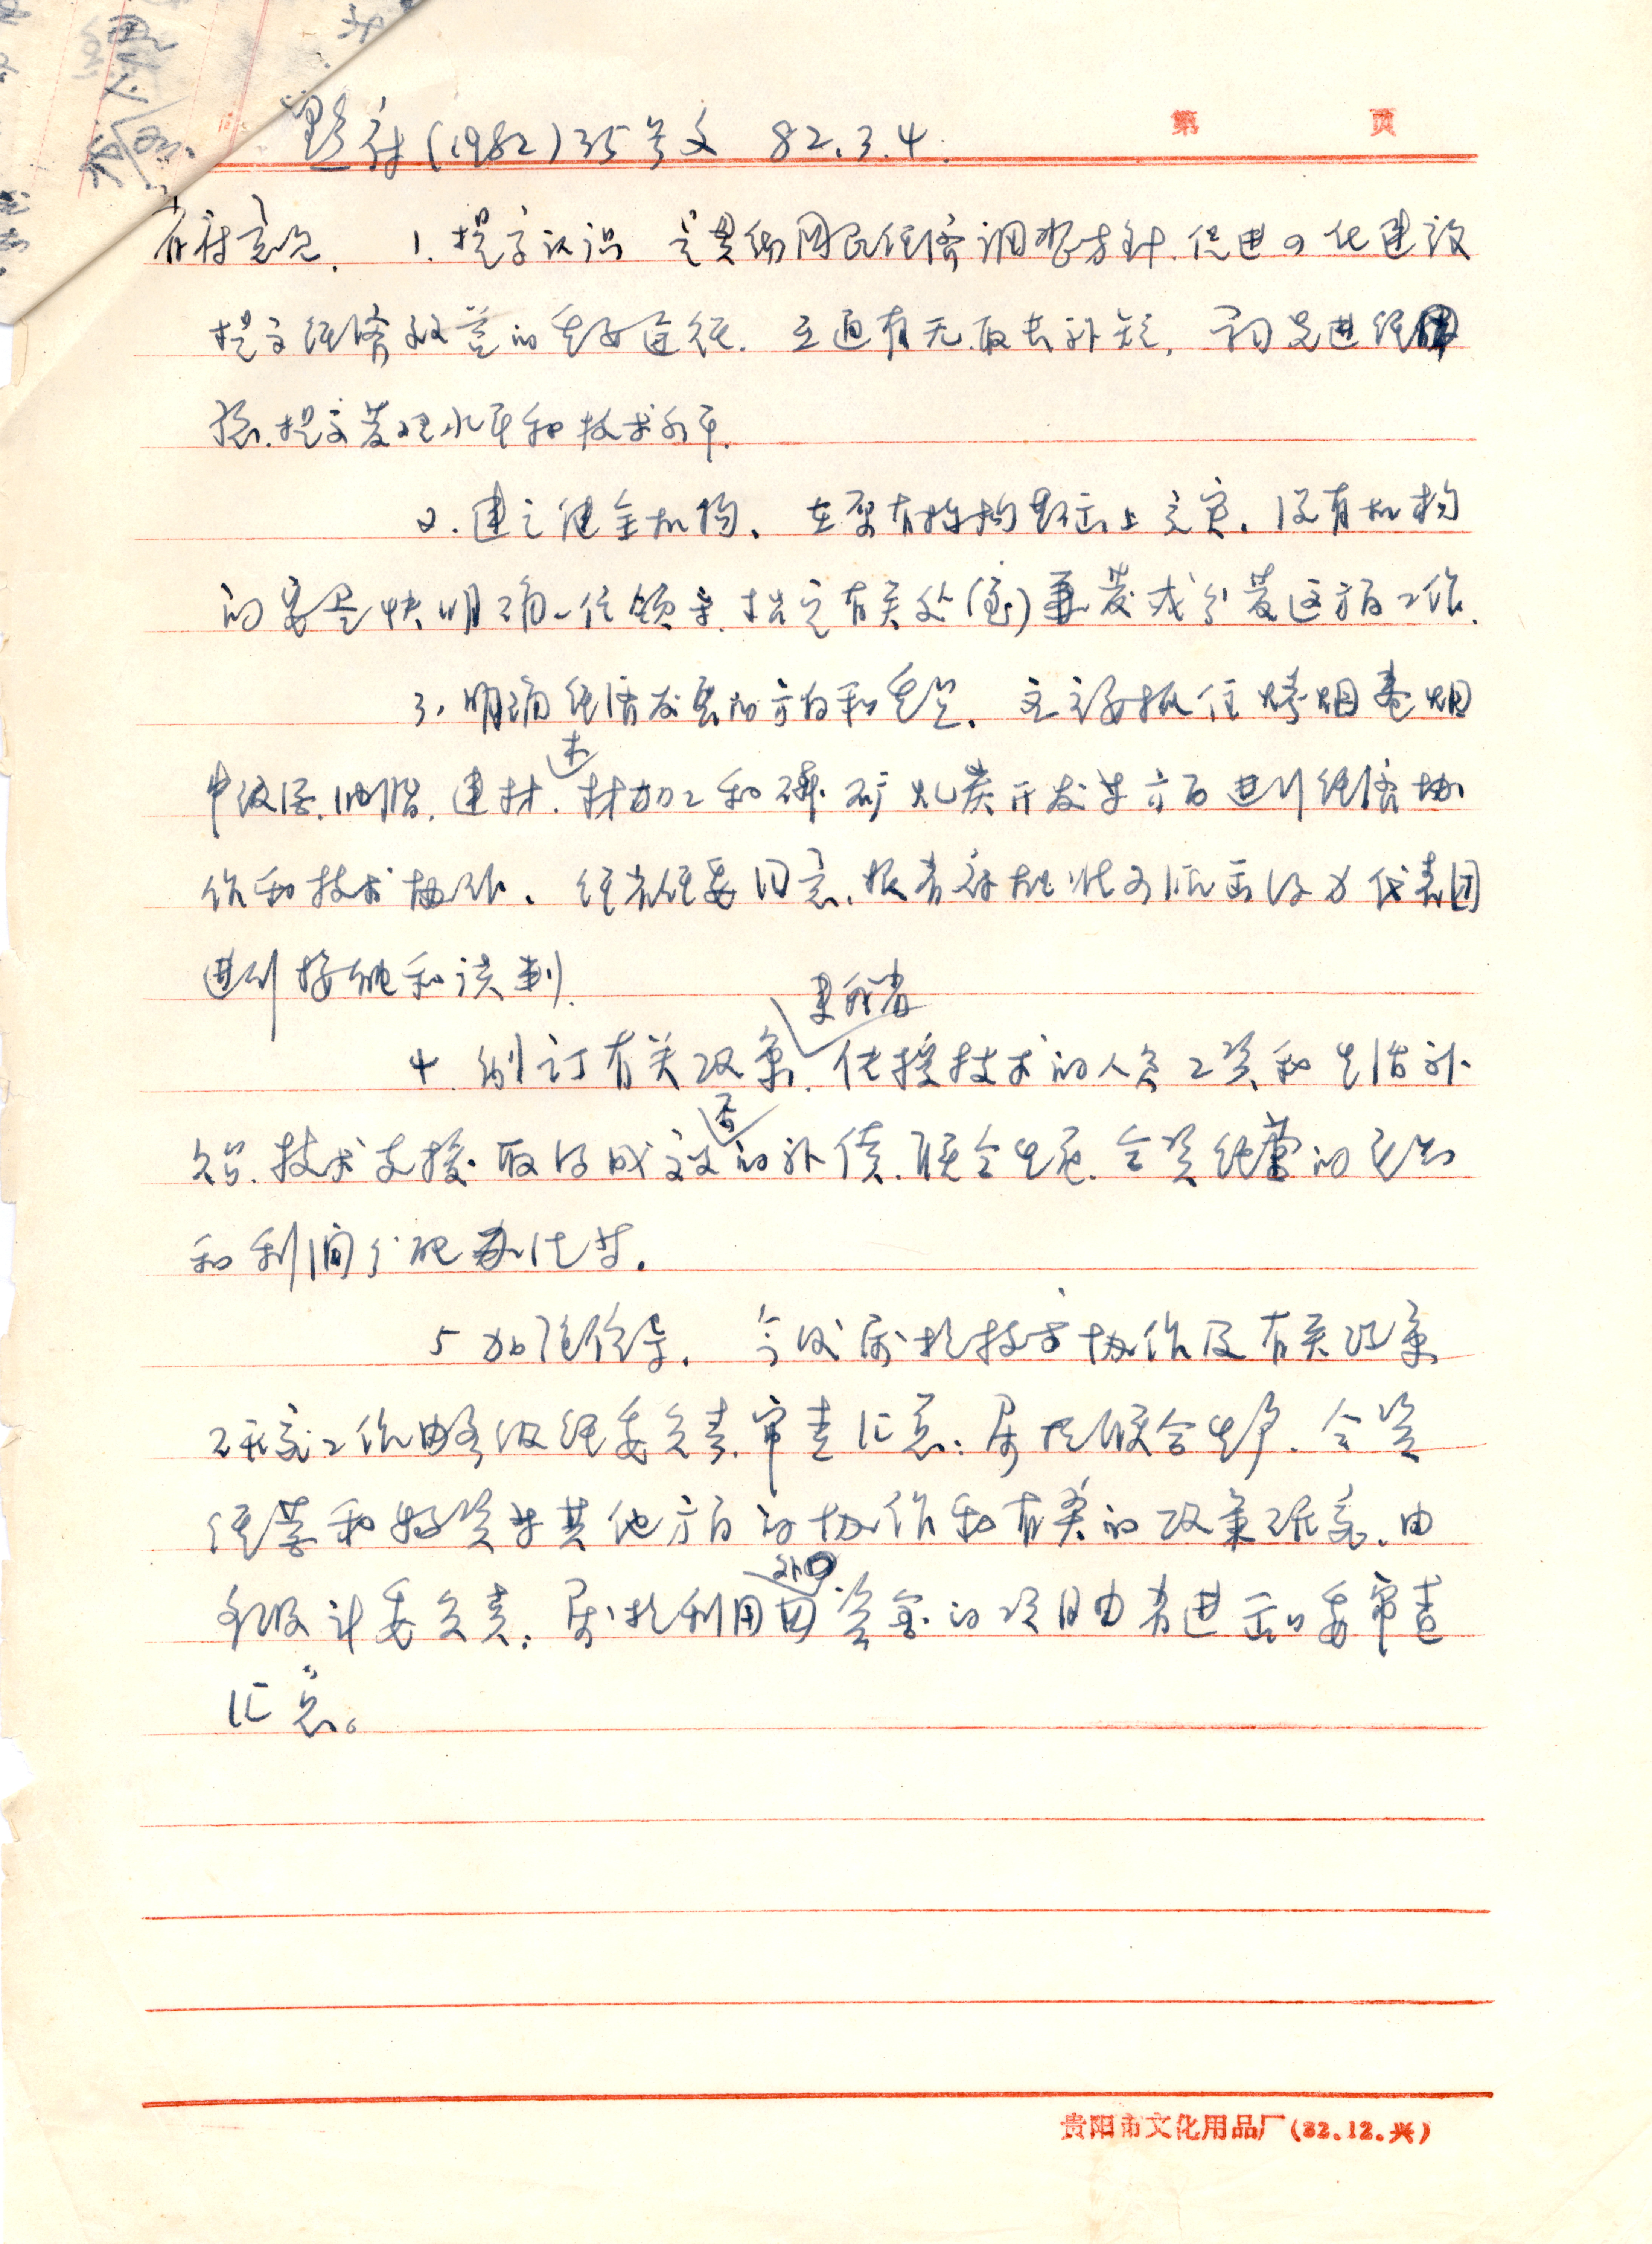 第 页
黔府(1982)35号文 82.3.4.
省府意见. 1. 提高认识 是贯彻国民经济调整方针.促进四化建设
提高经济效益的重要途径. 互通有无.取长补短, 学习先进经
验.提高管理水平和技术水平.
2. 建立健全机构. 在原有机构基础上充实. 没有机构
的要尽快明确一位领导.指定有关处(室)兼管或分管这方面工作.
3. 明确经济发展的方向和重点. 主要抓住烤烟卷烟
油脂. 建材. 木材加工和磷矿 煤炭开发等方面进行经济协
作和技术协作. 经省经委同意. 代表团
进行接触和谈判.
4. 制订有关政策. 传授技术的人员工资和生活补
贴. 技术支援. 取得成效后的补偿. 联合生产. 合资经营的
和利润分配办法等.
5 加强领导. 今后属于技术协作及有关政策
研究工作由各级经委负责. 审查汇总; 属于联合生产. 合资
经营和投资等其他方面的协作和有关的政策研究. 由
各级计委负责; 属于利用外国资金的项目由省进出口委审查
汇总。
贵阳市文化用品厂(82.12.兴)